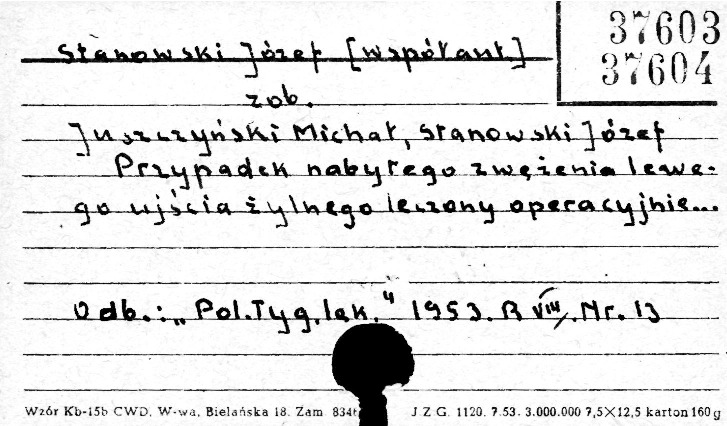 37603
37604
Stanowski Józef [współaut.]
zob.
Juszczyński Michał, Stanowski Józef
Przypadek nabytego zwężenia lewe-
go ujścia żylnego leczony operacyjnie...
Odb.: „Pol.Tyg.lek." 1953. R VIII. Nr. 13
Wzór Kb-15b CWD, W-wa, Bielańska 18. Zam 834 J.Z G. 1120. 7.53. 3.000.000 7,5×12,5 karton 160 g